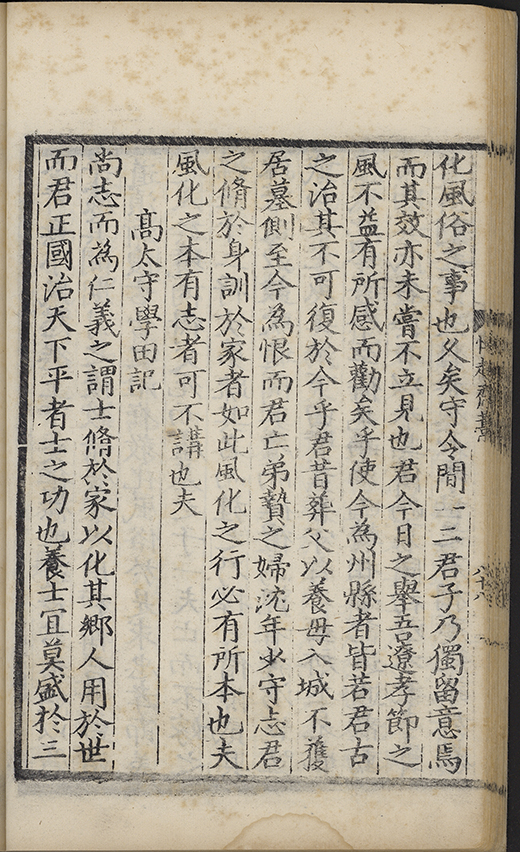 化風俗之事也久矣守令間一二君子乃獨留意焉
而其效亦未嘗不立見也君今日之舉吾遼孝節之
風不益有所感而勸矣乎使今為州縣者皆若君古
之治其不可復於今乎君昔葬父以養母入城不獲
居墓側至今為恨而君亡弟贄之婦沈年少守志君
之脩於身訓於家者如此風化之行必有所本也夫
風化之本有志者可不講也夫
髙太守學田記
尚志而為仁義之謂士脩於家以化其鄉人用於世
而君正國治天下平者士之功也養士宜莫盛於三